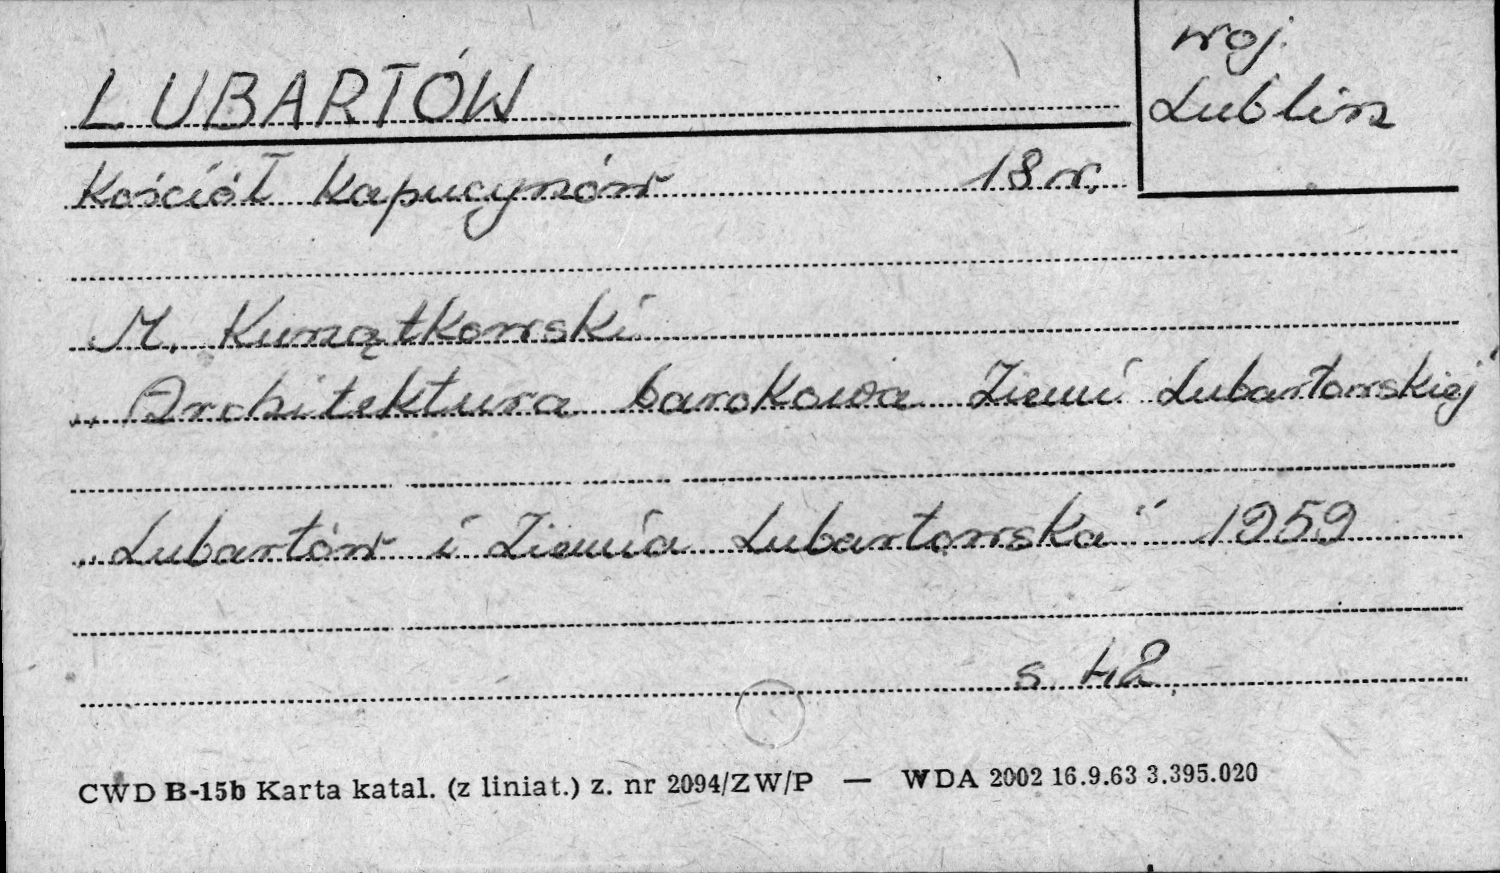 LUBARTÓW
woj.
Lublin
Kościół Kapucynów 18 w.
M. Kunzątkowski
„Architektura barokowa Ziemi Lubartowskiej"
„Lubartów i Ziemia Lubartowska" 1959
s. 42.
CWD B-15b Karta katal. (z liniat.) z. nr 2094/ZW/P — WDA 2002 16.9.63 3.395.020